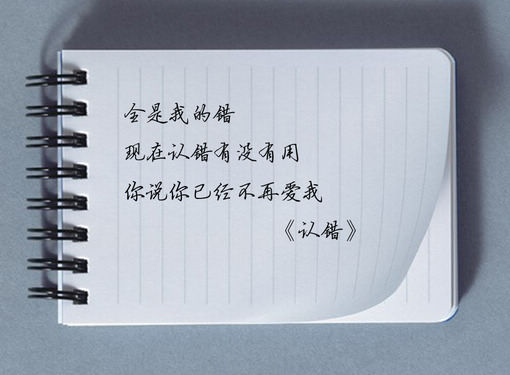 全是我的错
现在认错有没有用
你说你已经不再爱我
《认错》